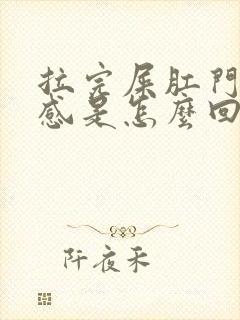 拉完屎肛門
感是怎麼回
阡夜禾